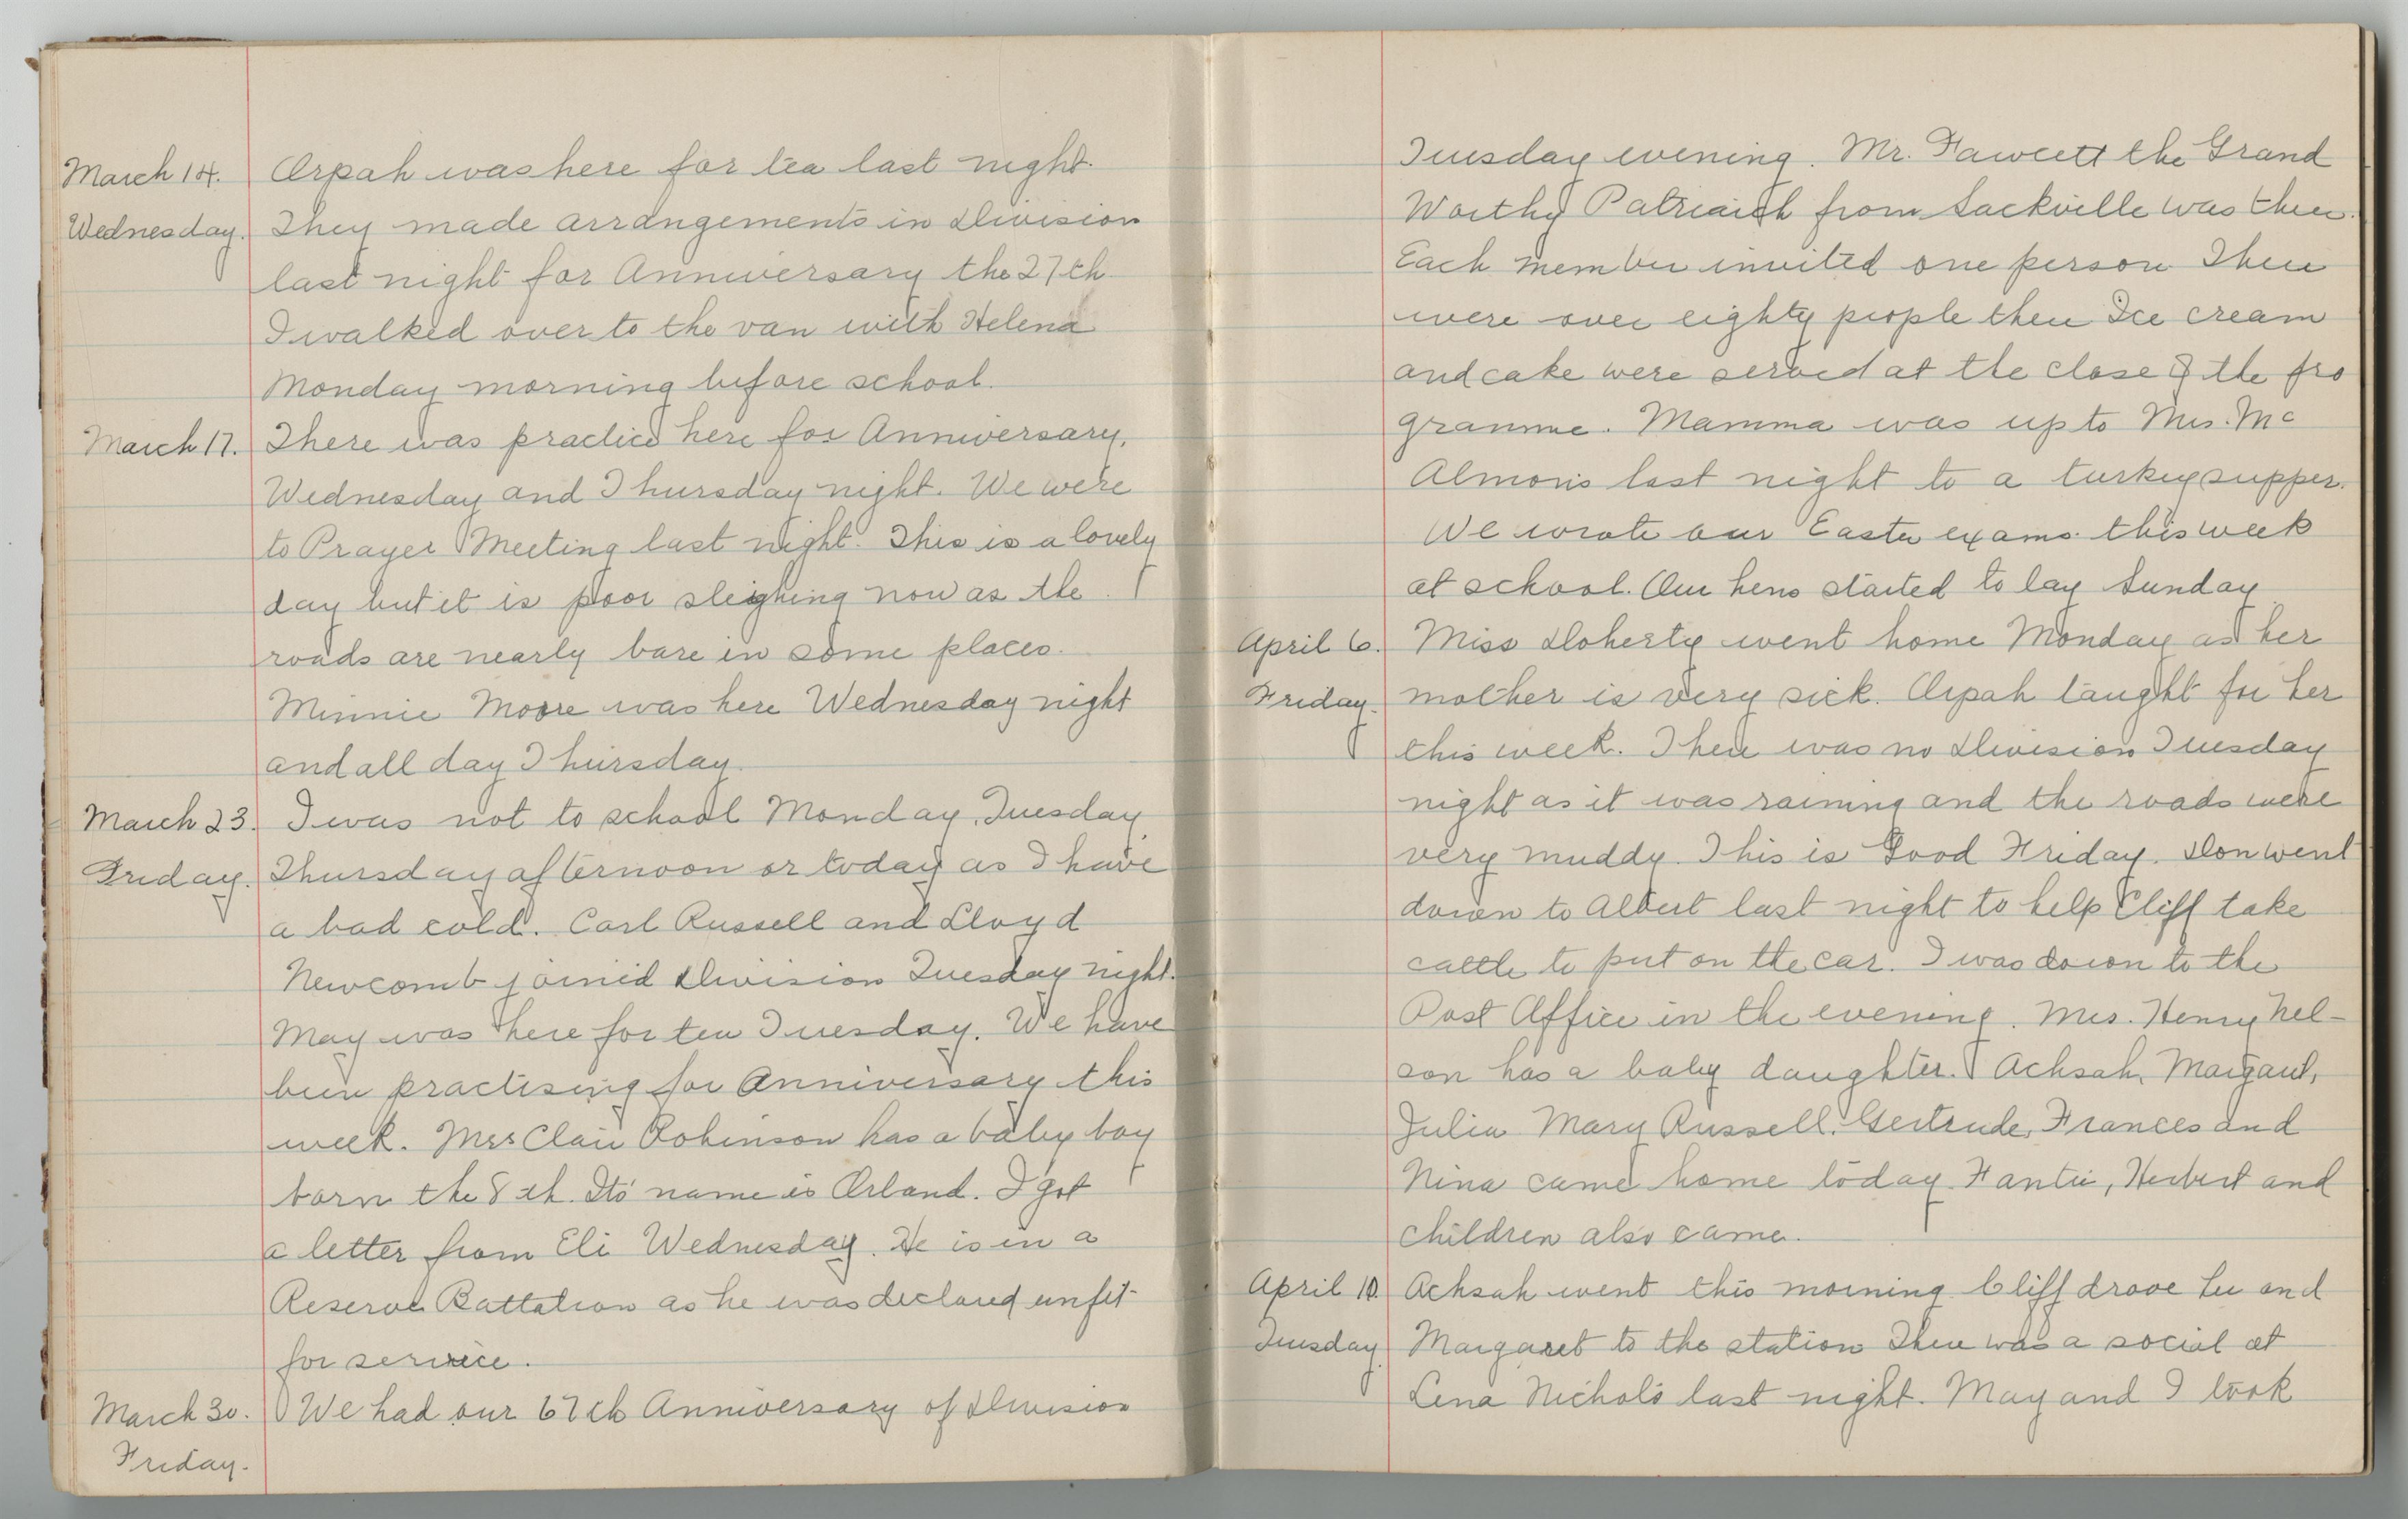 March 14. Orpah was here for tea last night.
Wednesday. They made arrangements in Division
last night for Anniversary the 27th
I walked over to the van with Helena
Monday morning before school.
March 17. There was practice here for Anniversary,
Wednesday and Thursday night. We were
to Prayer Meeting last night. This is a lovely
day but it is poor sleighing now as the
roads are nearly bare in some places.
Minnie Moore was here Wednesday night
and all day Thursday.
March 23. I was not to school Monday, Tuesday,
Friday. Thursday afternoon or today as I have
a bad cold. Carl Russell and Lloyd
Newcomb joined Division Tuesday night.
May was here for tea Tuesday. We have
been practising for Anniversary this
week. Mrs Clair Robinson has a baby boy
born the 8th. Its name is Orland. I got
a letter from Eli Wednesday. He is in a
Reserve Battalion as he was declared unfit
for service.
March 30. We had our 67th Anniversary of Division
Friday.
Tuesday evening. Mr. Fawcett the Grand
Worthy Patriarch from Sackville was there.
Each member invited one person There
were over eighty people there Ice cream
and cake were served at the close of the pro
gramme. Mamma was up to Mrs. Mc
Almon's last night to a turkey supper.
We wrote our Easter exams this week
at school. Our hens started to lay Sunday
April 6. Miss Doherty went home Monday as her
Friday. mother is very sick. Orpah taught for her
this week. There was no Division Tuesday
night as it was raining and the roads were
very muddy. This is Good Friday. Don went
down to Albert last night to help Cliff take
cattle to put on the car. I was down to the
Post Office in the evening. Mrs. Henry Nel-
son has a baby daughter. Achsah, Margaret,
Julia Mary Russell, Gertrude, Frances and
Nina came home today. Fantie, Herbert and
children also came.
April 10. Achsah went this morning Cliff drove Lu and
Tuesday. Margaret to the station There was a social at
Lena Nichol's last night. May and I took